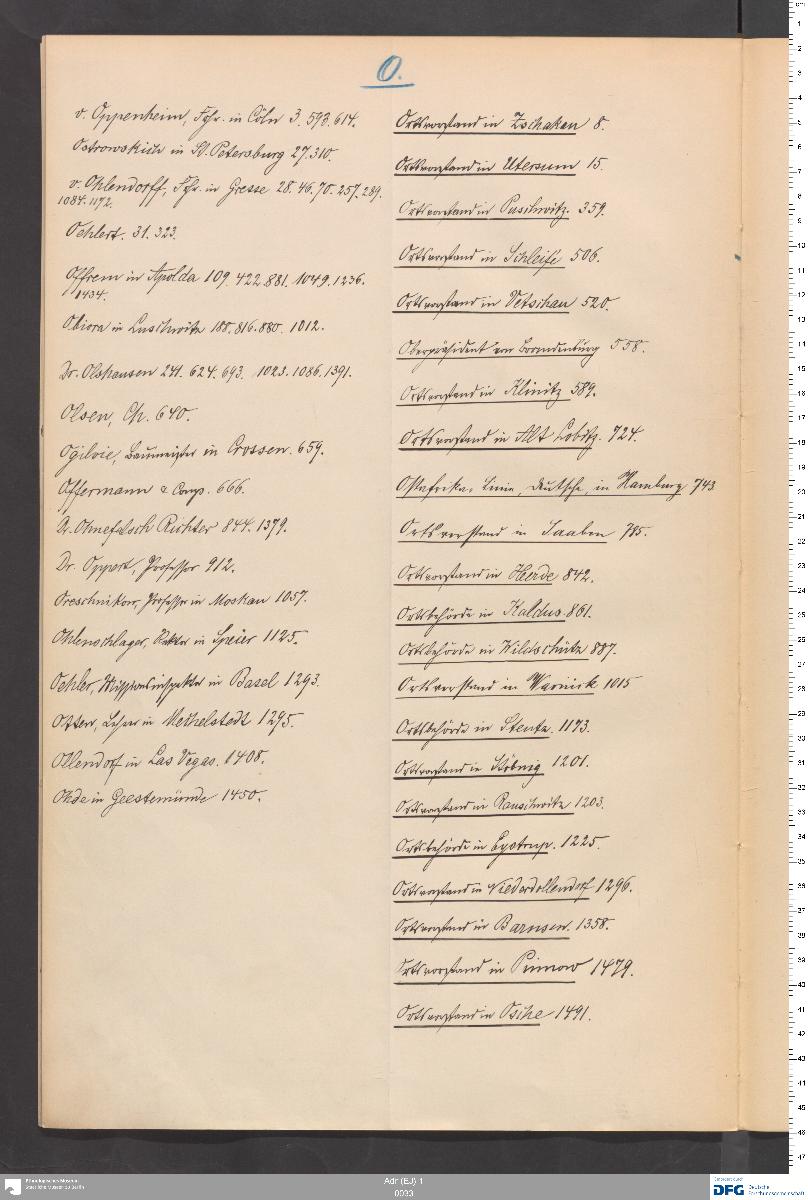 O.
v. Oppenheim, Frhr. in Cöln 3. 593. 614.
Ostrowskich in St. Petersburg 27. 310.
v. Ohlendorff, Frhr. in Gresse 28. 46. 70. 257. 289.
1084. 1172.
Oehlert. 31. 323.
Offrem in Apolda 109. 422. 881. 1049. 1236.
1434.
Obiora in Luschwitz 188. 816. 880. 1012.
Dr. Olshausen 241. 624. 693. 1023. 1086. 1391.
Olsen, Ch. 640.
Ogilvie, Baumeister in Crossen. 659.
Offermann & Comp. 666.
Dr. Ohnefalsch Richter 844. 1379.
Dr. Oppert, Professor 912.
Oreschnikow, Professor in Moskau 1057.
Ohlenschlager, Rektor in Speier 1125.
Oehler, Missionsinspektor in Basel 1293.
Otten, Lehrer in Methelstedt 1295.
Ollendorf in Las Vegas. 1408.
Ohde in Geestemünde 1450.
Ortsvorstand in Zschaken 8.
Ortsvorstand in Utersum 15.
Ortsvorstand in Puschwitz. 359.
Ortsvorstand in Schleife 506.
Ortsvorstand in Vetschau 520.
Oberpräsident von Brandenburg 558.
Ortsvorstand in Klinitz 589.
Ortsvorstand in Alt Lobitz. 724.
Ostafrika-Linie, Deutsche, in Hamburg 743
Ortsvorstand in Saaben 785.
Ortsvorstand in Heerde 842.
Ortsbehörde in Kaldus. 861.
Ortsbehörde in Wildschütz 887.
Ortsvorstand in Warnick 1015
Ortsbehörde in Stentz. 1173.
Ortsvorstand in Köbnig 1201.
Ortsvorstand in Rauschwitz 1203.
Ortsbehörde in Eystrup. 1225.
Ortsvorstand in Niederdollendorf 1296.
Ortsvorstand in Barnsen. 1358.
Ortsvorstand in Pinnow 1479.
Ortsvorstand in Osche 1491.
Ethnologisches Museum
Staatliche Museen zu Berlin
Adr (EJ) 1
0033
DFG Deutsche
Forschungsgemeinschaft